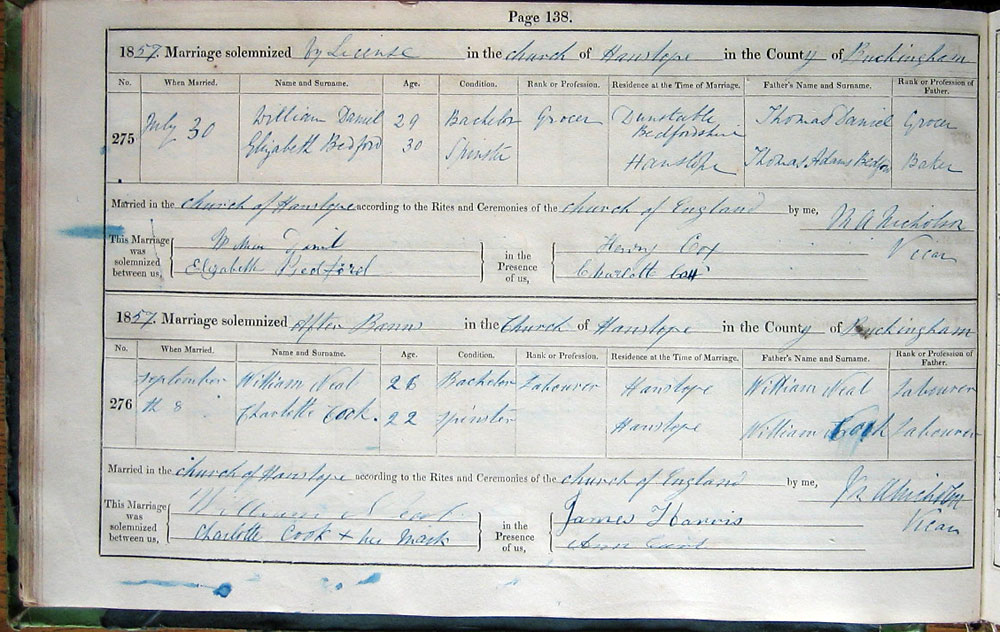 Page 138.
1857. Marriage solemnized by License in the church of Hanslope in the County of Buckingham
No. When Married. Name and Surname. Age. Condition. Rank or Profession. Residence at the Time of Marriage. Father's Name and Surname. Rank or Profession of Father.
275 July 30 William Daniel 29 Bachelor Grocer Dunstable Bedfordshire Thomas Daniel Grocer
Elizabeth Bedford 30 Spinster Hanslope Thomas Adams Bedford Baker
Married in the church of Hanslope according to the Rites and Ceremonies of the church of England by me, M A Nicholson
Vicar
This Marriage was solemnized between us, William Daniel in the Presence of us, Henry Cox
Elizabeth Bedford Charlotte
1857. Marriage solemnized After Banns in the Church of Hanslope in the County of Buckingham
No. When Married. Name and Surname. Age. Condition. Rank or Profession. Residence at the Time of Marriage. Father's Name and Surname. Rank or Profession of Father.
276 September William Neal 26 Bachelor Labourer Hanslope William Neal Labourer
th 8 Charlotte Cook. 22 Spinster Hanslope William Cook Labourer
Married in the church of Hanslope according to the Rites and Ceremonies of the church of England by me, M A Nicholson
Vicar
This Marriage was solemnized between us, William Neal in the Presence of us, James Harris
Charlotte Cook + her Mark Ann